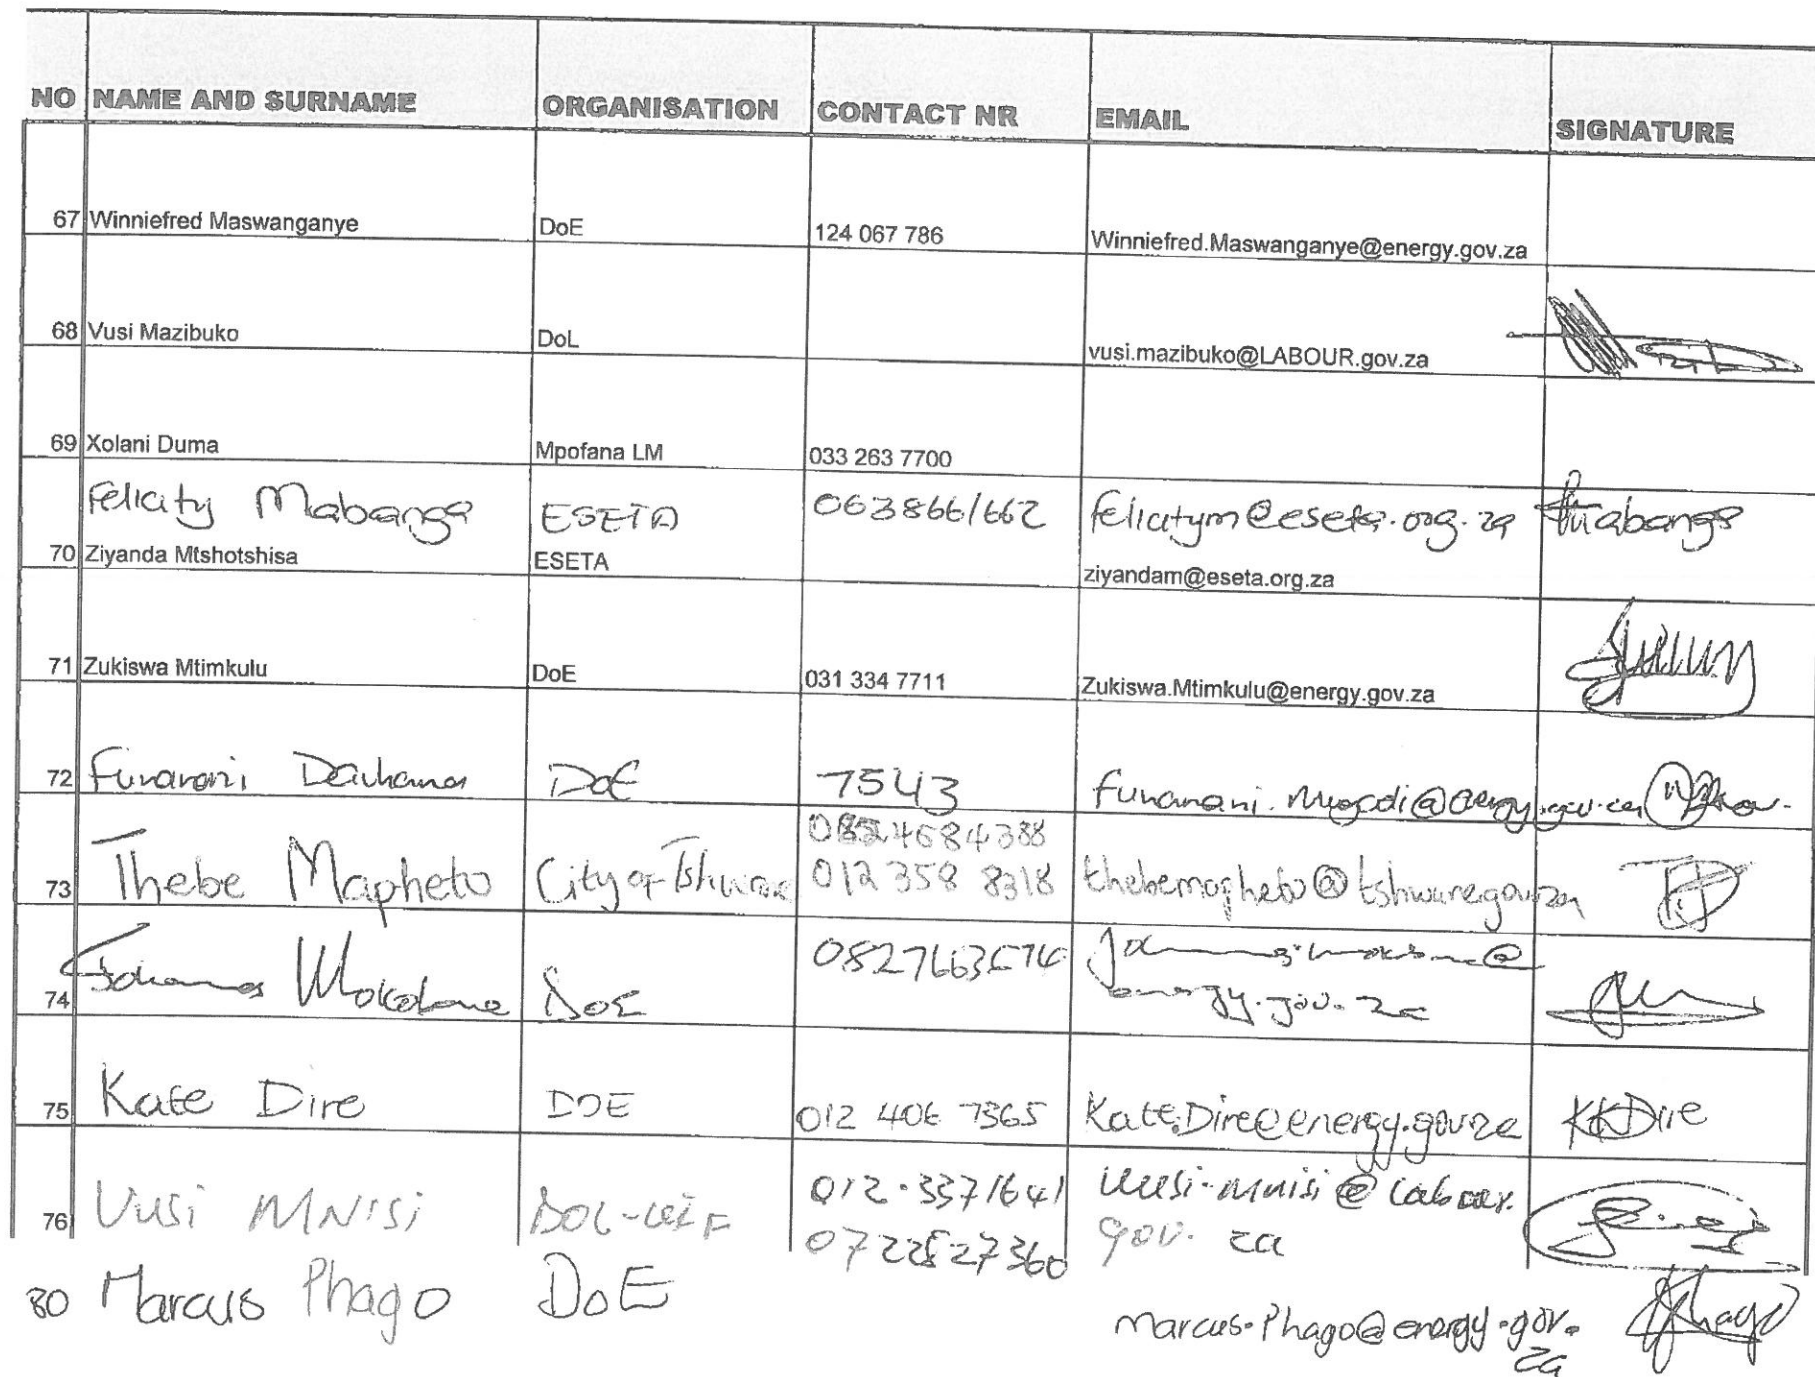 NO NAME AND SURNAME ORGANISATION CONTACT NR EMAIL SIGNATURE
67 Winniefred Maswanganye DoE 124 067 786 Winniefred.Maswanganye@energy.gov.za
68 Vusi Mazibuko DoL vusi.mazibuko@LABOUR.gov.za
69 Xolani Duma Mpofana LM 033 263 7700
Felicity Mabanga ESETA 0638661662 felicitym@eseta.org.za Fmabanga
70 Ziyanda Mtshotshisa ESETA ziyandam@eseta.org.za
71 Zukiswa Mtimkulu DoE 031 334 7711 Zukiswa.Mtimkulu@energy.gov.za
72 Funanani DoE 7543
73 Thebe Mapheto City of Tshwane 012 358 8318 thebemapheto@tshwane.gov.za
74 DoE
75 Kate Dire DOE 012 406 7365 Kate.Dire@energy.gov.za KKDire
76 Vusi MNISI DOL-UIF 012.3371641 Vusi.mnisi@labour.
gov.za
80 Marcus Phago DoE Marcus.Phago@energy.gov.
za